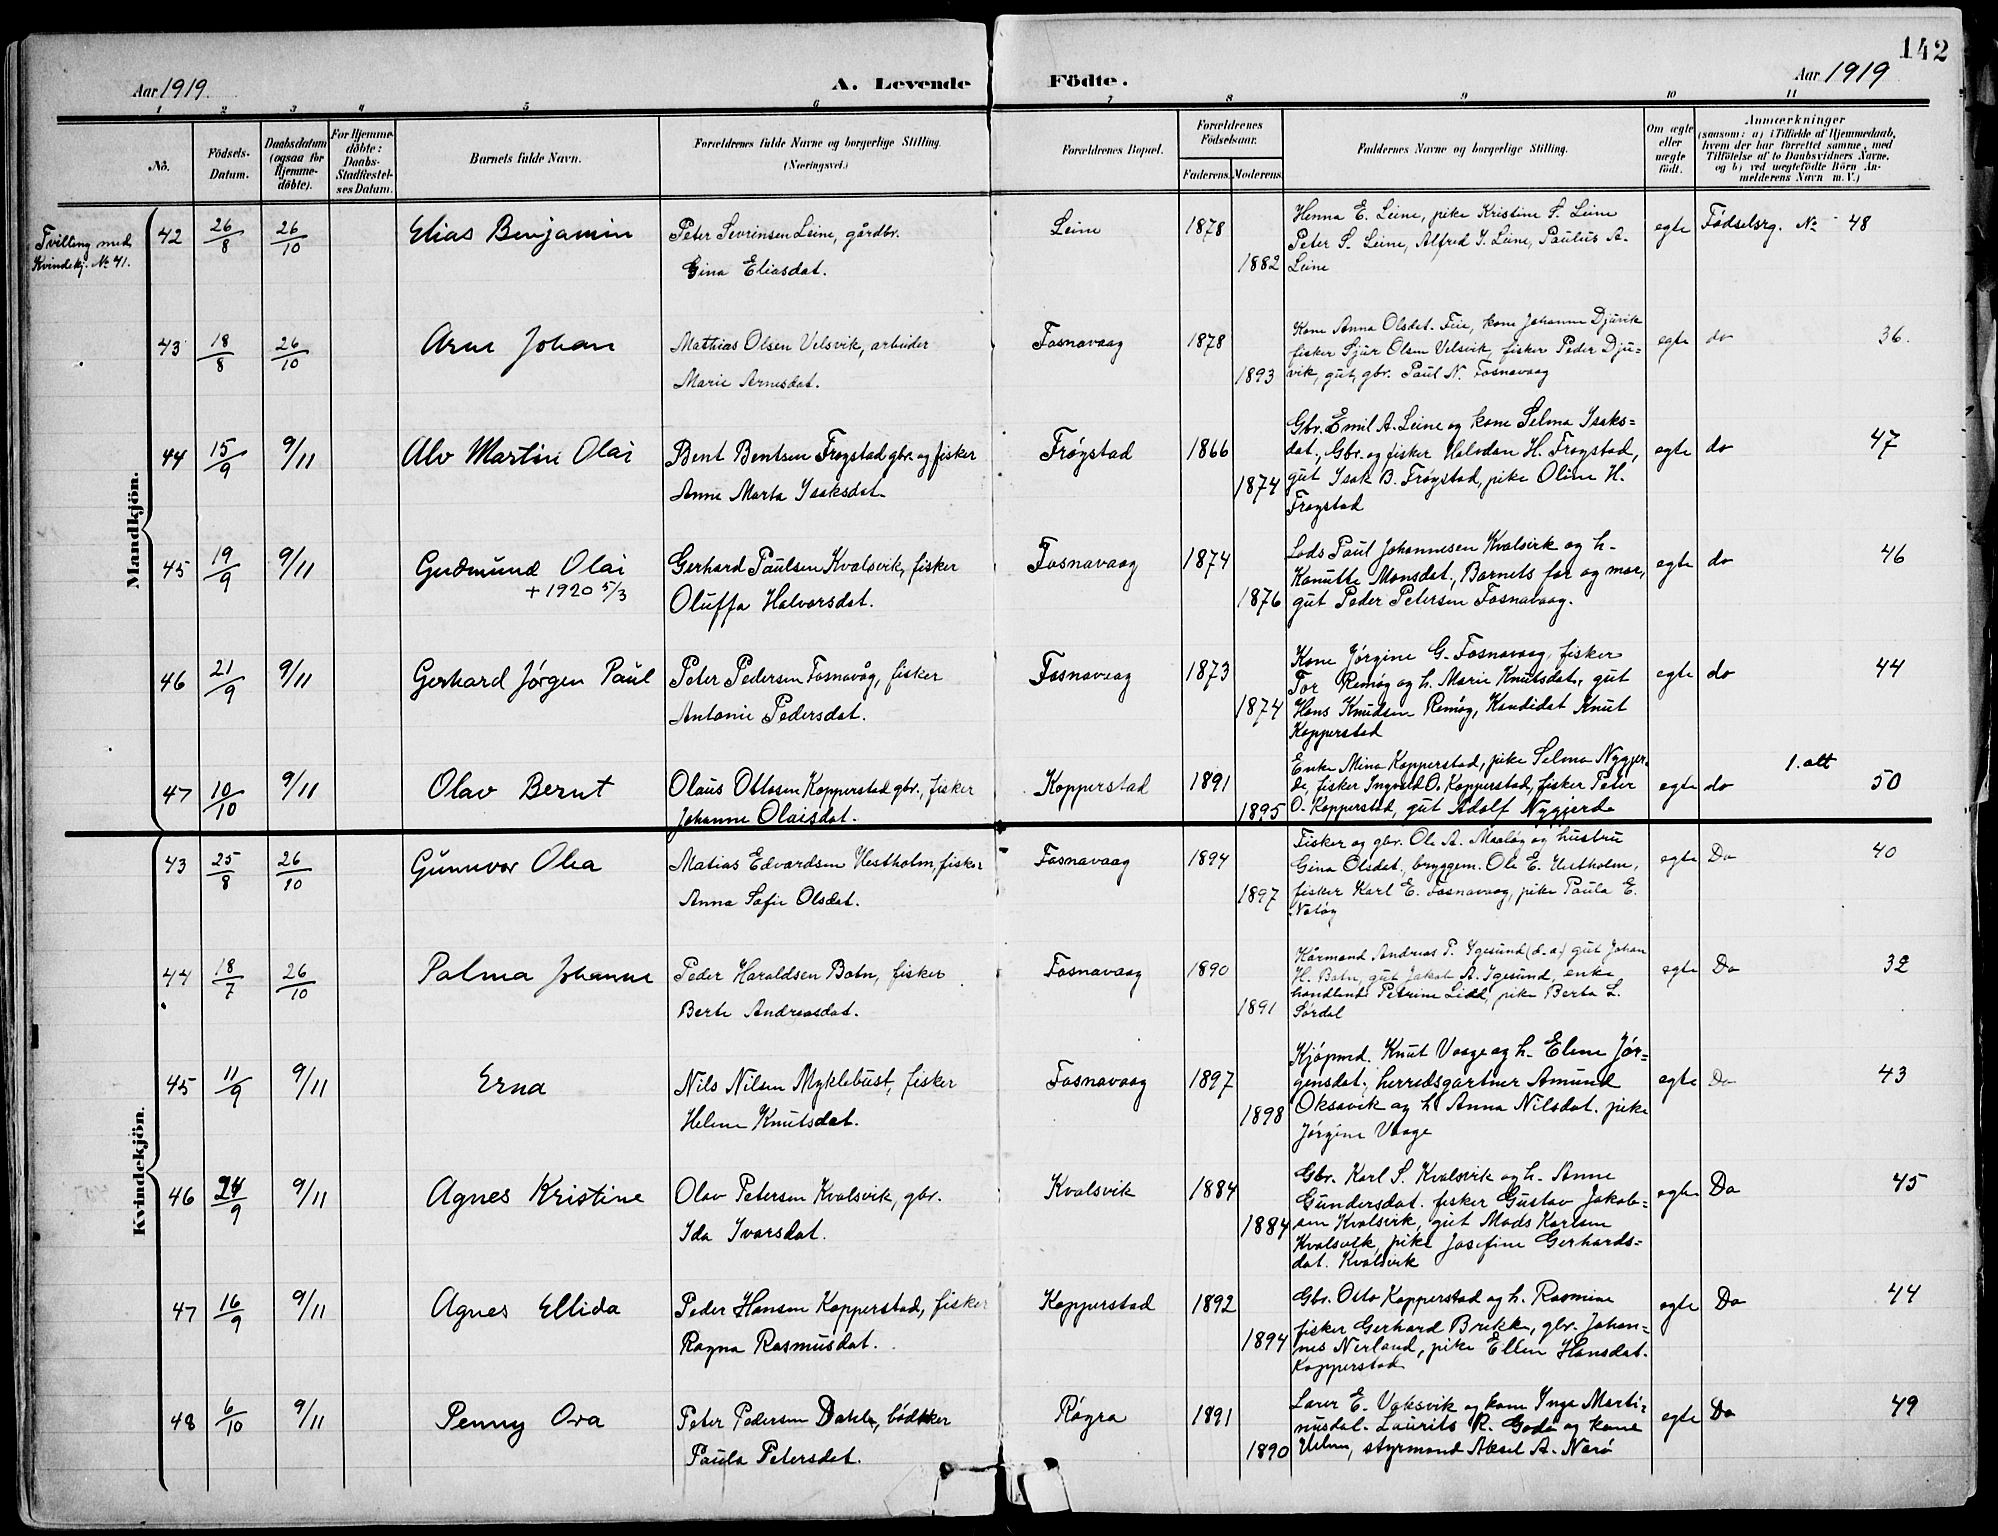 142
Aar 1919.
A. Levende
Födte.
Aar 1919
1 2 3 4 5 6 7 8 9 10 11
No.
Födsels-
Datum.
Daabsdatum
(ogsaa for
Hjemme-
döbte).
For Hjemme-
döbte:
Daabs-
Stadfæstel-
ses Datum.
Barnets fulde Navn.
Forældrenes fulde Navne og borgerlige Stilling.
(Næringsvei.)
Forældrenes Bopæl.
Forældrenes
Födselsaar.
Faderens. Moderens.
Faddernes Navne og borgerlige Stilling.
Om ægte
eller
uægte
födt.
Anmærkninger
(saasom: a) i Tilfælde af Hjemmedaab,
hvem der har forrettet samme, med
Tilföielse af to Daabsvidners Navne,
og b) ved uægtefödte Börn An-
melderens Navn m. V.)
Mandkjön.
Tvilling med
Kvindekj. № 41.
42 26/8 26/10 Elias Benjamin
Peter Sevrinsen Leine, gårdbr.
Gina Eliasdat.
Leine 1878
1882
Henna E. Leine, pike Kristine S. Leine
Peter S. Leine, Alfred J. Leine, Paulus A.
Leine
egte Fødselsrg. № 48
43 18/8 26/10 Arne Johan
Mathias Olsen Velsvik, arbeider
Marie Arnesdat.
Fosnavaag 1878
1893
Kone Anna Olsdat. Feie, kone Johanne Djuvik
fisker Sjur Olsen Velsvik, fisker Peder Dju-
vik, gut, gbr. Paul N. Fosnavaag
egte do 36.
44 15/9 9/11 Alv Martin Olai
Bent Bentsen Frøystad gbr. og fisker
Anne Marta Isaksdat.
Frøystad 1866
1874
Gbr. Emil A. Leine og kone Selma Isaks-
dat., Gbr. og fisker Halvdan H. Frøystad,
gut Isak B. Frøystad, pike Oline H.
Frøystad
egte do 47
45 19/9 9/11 Gudmund Olai
+ 1920 5/3
Gerhard Paulsen Kvalsvik, fisker
Oluffa Halvorsdat.
Fosnavaag 1874
1876
Lods Paul Johannesen Kvalsvik og h.
Kanutte Monsdat., Barnets far og mor,
gut Peder Petersen Fosnavaag.
egte do 46
46 21/9 9/11 Gerhard Jørgen Paul
Peter Pedersen Fosnavåg, fisker
Antonie Pedersdat.
Fosnavaag 1873
1874
Kone Jørgine G. Fosnavaag, fisker
Tor Remøy og h. Marie Knutsdat., gut
Hans Knudsen Remøy, Kandidat Knut
Kopperstad
egte do 44
47 10/10 9/11 Olav Bernt
Olaus Ottosen Kopperstad gbr., fisker
Johanne Olaisdat.
Kopperstad 1891
1895
Enke Mina Kopperstad, pike Selma Nygjer-
de, fisker Ingvald O. Kopperstad, fisker Peter
O. Kopperstad, gut Adolf Nygjerde
egte do 1. alt 50
Kvindekjön.
43 25/8 26/10 Gunnvor Olea
Matias Edvardsen Vestholm, fisker
Anna Sofie Olsdat.
Fosnavaag 1894
1897
Fisker og gbr. Ole A. Maaløy og hustru
Gina Olsdat., bryggem. Ole E. Vestholm,
fisker Karl E. Fosnavaag, pike Paula E.
Notøy
egte Do 40
44 18/7 26/10 Palma Johanne
Peder Haraldsen Botn, fisker
Berte Andreasdat.
Fosnavaag 1890
1891
Kårmand Andreas P. Igesund (d. a.) gut Johan
H. Botn, gut Jakob A. Igesund, enke
handlende Petrine Lidd, pike Berta L.
Sørdal
egte Do 32
45 11/9 9/11 Erna
Nils Nilsen Myklebust, fisker
Helene Knutsdat.
Fosnavaag 1897
1898
Kjøpmd. Knut Vaage og h. Elene Jør-
gensdat., herredsgartner Amund
Oksavik og h. Anna Nilsdat. pike
Jørgine Vaage
egte Do 43
46 24/9 9/11 Agnes Kristine
Olav Petersen Kvalsvik, gbr.
Ida Ivarsdat.
Kvalsvik 1884
1884
Gbr. Karl S. Kvalsvik og h. Anne
Gundersdat. fisker Gustav Jakob-
sen Kvalsvik, gut Mads Karlsen
Kvalsvik, pike Josefine Gerhards-
dat. Kvalsvik
egte Do 45
47 16/9 9/11 Agnes Ellida
Peder Hansen Kopperstad, fisker
Ragna Rasmusdat.
Kopperstad 1892
1894
Gbr. Otto Kopperstad og h. Rasmine
fisker Gerhard Brekke, gbr. Johan-
nes Nerland, pike Ellen Hansdat.
Kopperstad
egte Do 44
48 6/10 9/11 Penny Ova
Peter Pedersen Dahle, bødkker
Paula Petersdat.
Røyra 1891
1890
Lærer E. Voksvik og kone Inga Marti-
nusdal. Laurits R. Godø og kone
Velma, styrmand Aksel A. Nerø
egte Do 49